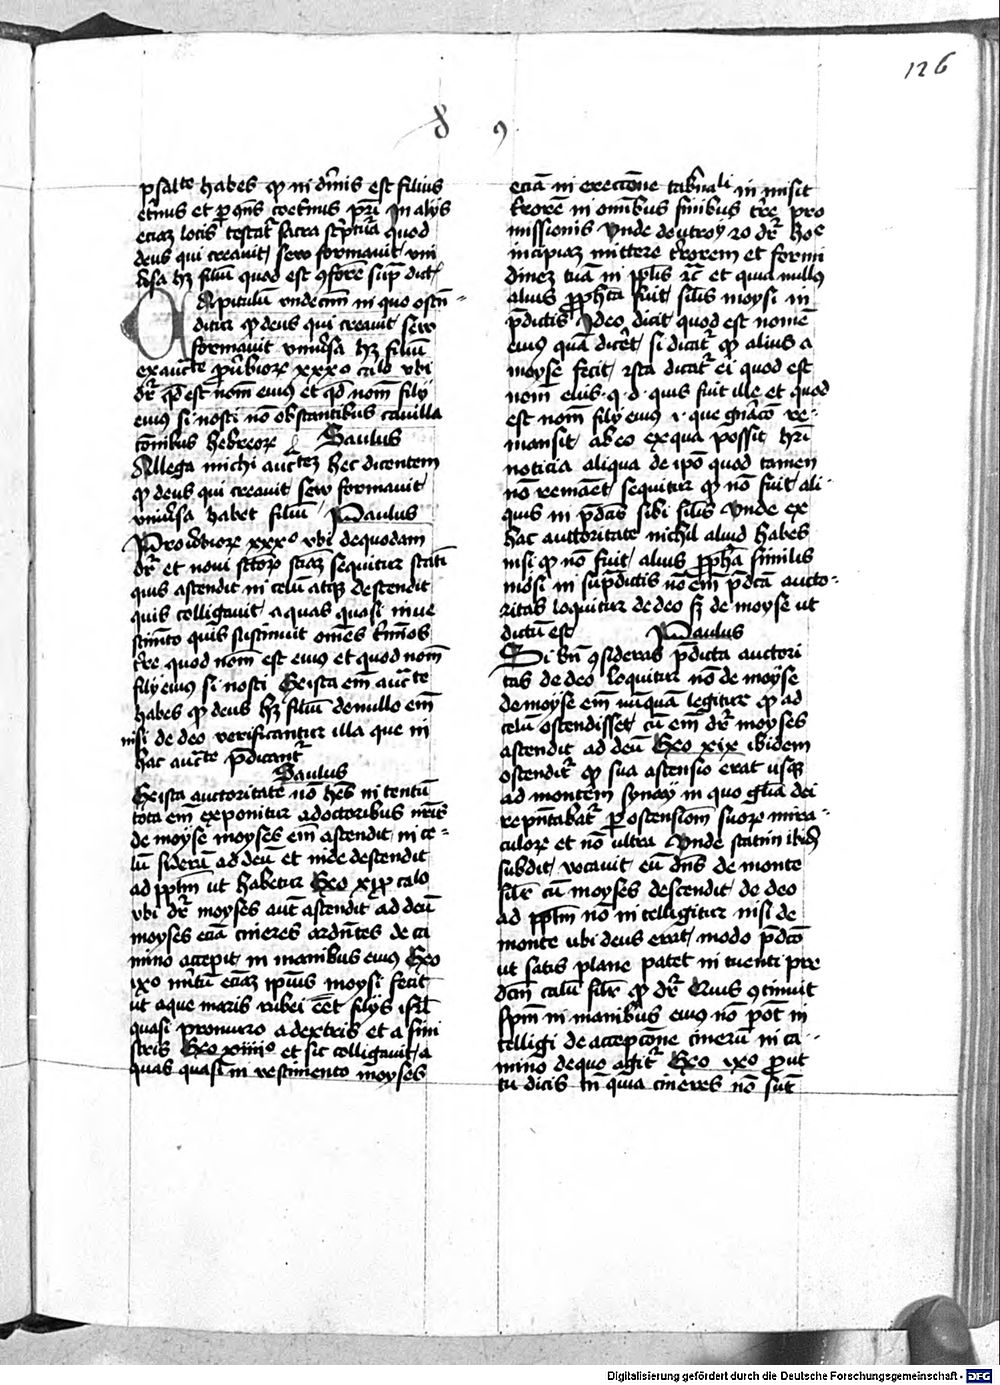 126
8 9
psalte habes qp in diuinis est filius
et'nus et p' q'ns coet'nus p'ri In alijs
eciaz locis testat' sacra sc'ptura quod
deus qui creauit seu formauit vni
u'sa hz filiu quod est 9fore sup' dict'
Apitulu vndecim in quo osten-
ditur qp deus qui creauit seu
formauit vniu'sa hz filiu
ex aucte prou'bior xxxo calo vbi
dr qd est nom eius et qd nom filij
eius si nosti no obstantibus cauilla
conibus hebreor Saulus
Allega michi auctez hec dicentem
qp deus qui creauit seu formauit
vniu'sa habet filiu Paulus
Prou'bior xxxo vbi de quodam
dr et noui sctor sciaz sequitur
quis ascendit in celu atqz descendit
quis colligauit aquas quasi in ue
stimeto quis sustinuit omes t'mios
t're quod nom est eius et quod nom
filij eius si nosti Ex ista em aucte
habes qp deus hz filiu de nullo em
nisi de deo verificantur illa que in
hac aucte p'dicant'
Saulus
Ex ista auctoritate no hes in tentu
tota em exponitur a doctoribus nris
de moyse moyses em ascendit in ce-
lu sideru ad deu et inde descendit
ad pplm ut habetur Exo xix calo
vbi dr moyses aut ascendit ad deu
moyses ecia cineres ardentes de ca
mino accepit in manibus eius Exo
ixo ipius moysi fecit
ut aque maris rubei eet filijs isrl
quasi pro muro a dextris et a sini
stris Exo xiiiio et sic colligauit a
quas quasi in vestimento moyses
ecia in ereccone tab'nali in misit
t'rore in omibus finibus t're pro
missionis Vnde deutroy 20 dr hoe
incipiaz mittere t'rorem et formi
dinez tua in pplis 2c et quia nullus
alius ppheta fuit silis moysi in
p'dictis Ideo dicit quod est nome
eius qua dic'et si dicat' qp alius a
moyse fecit ista dicat' ei quod est
nom eius .q.d. quis fuit ille et quod
est nom filij eius .i. que gn'aco re-
mansit ab eo ex qua possit h'ri
noticia aliqua de ipo quod tamen
no remaet sequitur qp no fuit ali-
quis in p'dcis sibi silis Vnde ex
hac auttoritate nichil aliud habes
nisi qp no fuit alius pphta similis
mosi in sup'dictis no em p'dca aucto-
ritas loquitur de deo sz de moyse ut
dictu est Paulus
Si bn 9sideras p'dicta auctori
tas de deo loquitur no de moyse
de moyse em nuqua legitur qp ad
celu ascendisset cu em dr moyses
ascendit ad deu Exo xix ibidem
ostendit' qp sua ascensio erat usqz
ad montem synay in quo glia dei
rep'ntabat' p' ostensiom suor mira-
culor et no ultra Vnde statim ibid'
subdit vocauit eu dns de monte
silr cu moyses descendit de deo
ad pplm no intelligitur nisi de
monte ubi deus erat modo p'dco
ut satis plane patet intuenti pre
dcm calu silr qp dr Quis 9tinuit
spm in manibus eius no pot in
telligi de accepcone cineru in ca-
mino de quo agit' Exo ixo prout
tu dicis tn quia cineres no sut
Digitalisierung gefördert durch die Deutsche Forschungsgemeinschaft - DFG